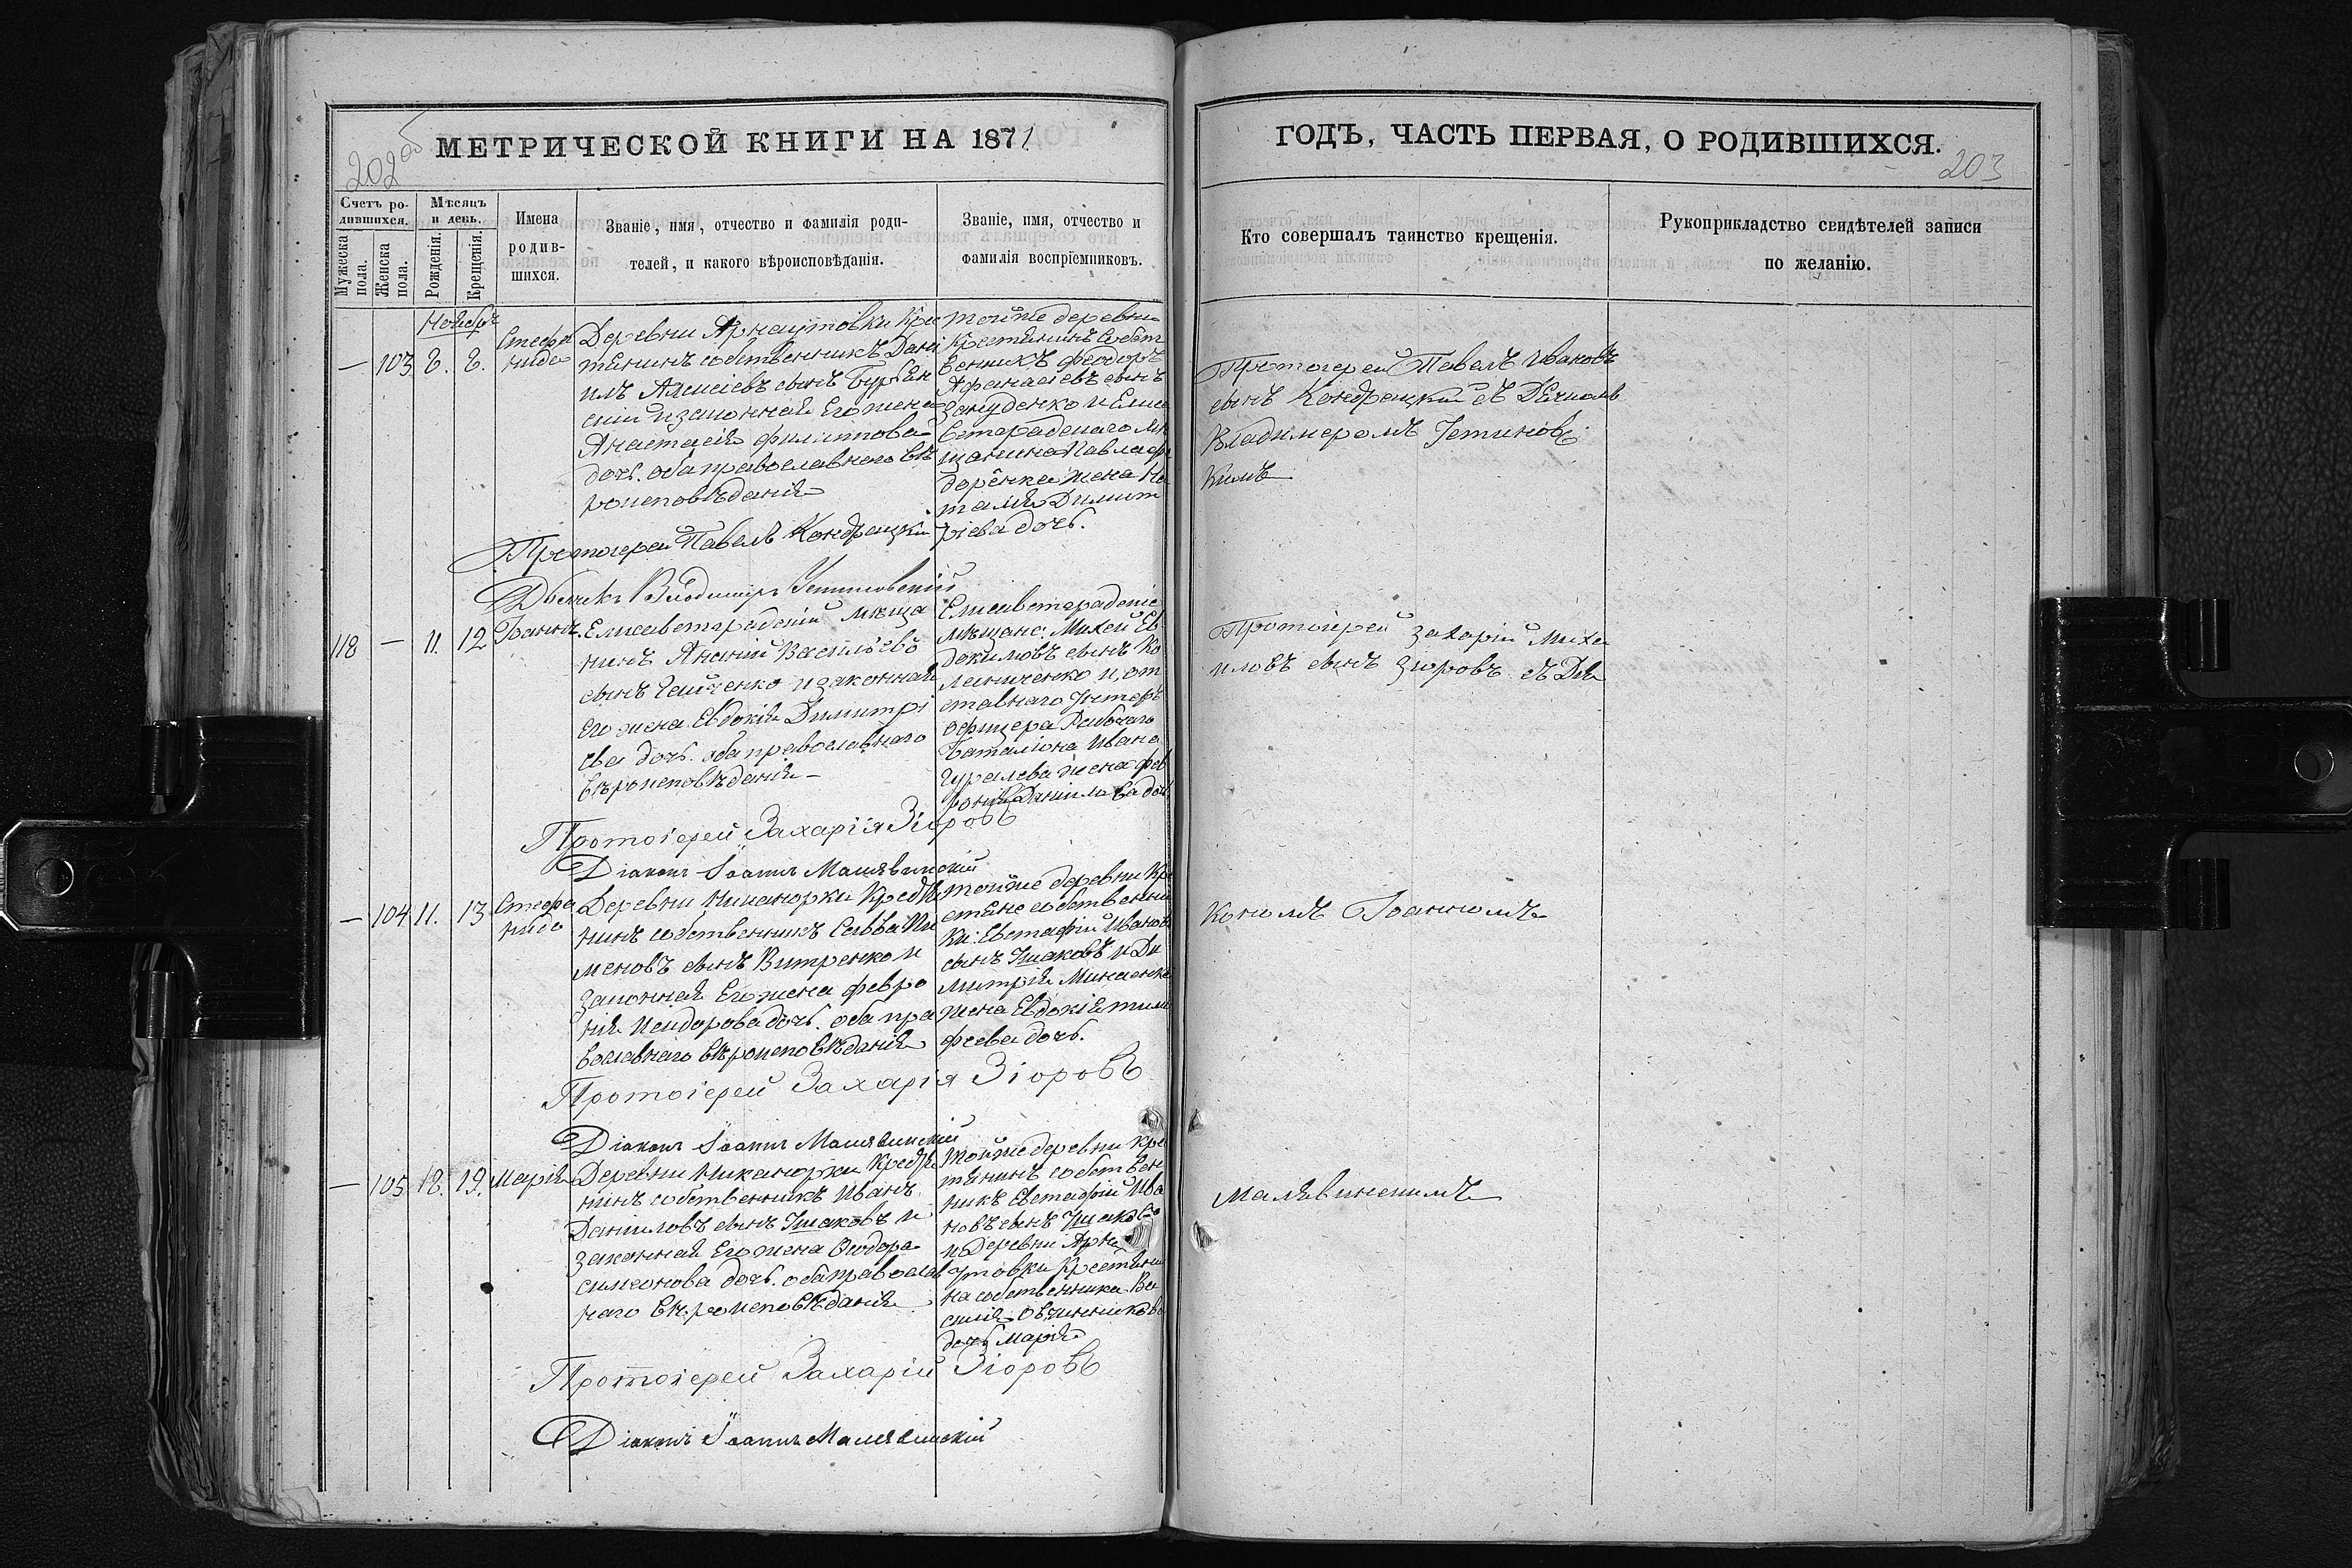 202об
МЕТРИЧЕСКОЙ КНИГИ НА 1871
Счетъ родившихся.
Мужеска пола.
Женска пола.
Мѣсяцъ и день.
Рожденія.
Крещенія.
Имена родив-
шихся.
Званіе, имя, отчество и фамилія роди-
телей, и какого вѣроисповѣданія.
Званіе, имя, отчество и
фамилія воспріемниковъ.
Ноябрь
— 103 8. 8.
Стефа
нида
Деревни Арнаутовки Кре
тянинъ собственникъ Дани
илъ Алексіевъ сынъ
скій и законная Его жена
Анастасія филиппова
дочь. оба православнаго вѣ
роисповѣданія
тойже деревни
Крестянинъ собст
венникъ феодоръ
Афанасіевъ сынъ
и Елиса
ветградскаго мѣ
щанина Павла
жена На
талія Димит
ріева дочь.
Протоіерей Павелъ Кондрацкій
Діаконъ Владимиръ Устиновскій
118 — 11. 12
Іоаннъ.
Елисаветградскій мѣща
нинъ Ананій Васильевъ
сынъ и законная
Его жена Евдокія Димитрі
ева дочь. оба православнаго
вѣроисповѣданія —
Елисаветградскіе
мѣщане: Михей Ев
докимовъ сынъ Ко
лениченко и, от
ставнаго Унтеръ
офицера Рабочаго
Баталіона Ивана
Гуралева жена фев
ронія Даніилова доч
Протоіерей Захарія Зіоровъ
Діаконъ Іоаннъ Малявинскій
— 104 11. 13
Стефа
нида
Деревни Никанорки Крестя
нинъ собственникъ Савва Пи
меновъ сынъ Витренко и
законная Его жена февро
нія Исидорова дочь. оба пра
вославнаго вѣроисповѣданія
тойже деревни Кре
стяне собственни
ки: Евстафій Ивановъ
сынъ Ушаковъ и Ди
митрія Минаенка
жена Евдокія тимо
феева дочь.
Протоіерей Захарія Зіоровъ
Діаконъ Іоаннъ Малявинскій
— 105 18. 19.
Марія
Деревни Никанорки Крестя
нинъ собственникъ Иванъ
Даниловъ сынъ Ушаковъ и
законная Его жена Феодора
симеонова дочь. оба православ
наго вѣроисповѣданія
тойже деревни Кре
тянинъ собствен
никъ Евстафій Ива
новъ сынъ Ушаковъ
и Деревни Арна
утовки Крестяни
на собственника Ва
силія Овчинникова
дочь Марія
Протоіерей Захарій Зіоровъ
Діаконъ Іоаннъ Малявинскій
ГОДЪ, ЧАСТЬ ПЕРВАЯ, О РОДИВШИХСЯ.
203
Кто совершалъ таинство крещенія.
Рукоприкладство свидѣтелей записи
по желанію.
Протоіерей Павелъ Ивановъ
сынъ Кондрацкій съ Діаконъ
Владимеромъ Устиновс
кимъ
Протоіерей Захарій Миха
иловъ сынъ Зіоровъ съ Діа
кономъ Іоанномъ
Малявинскимъ